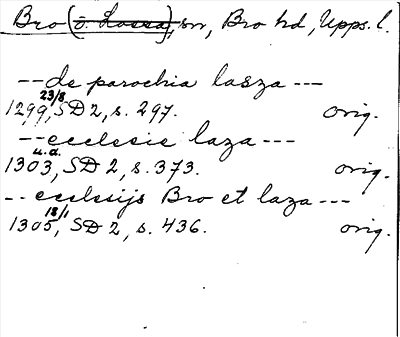 Bro (o. Lossa), sn, Bro hd, Upps. l.
--de parochia lasza ---
23/8
1299, SD 2, s. 297. orig.
--ecclesie laza ---
u.d.
1303, SD 2, s. 373. orig.
-- ecclesijs Bro et laza ---
18/1
1305, SD 2, s. 436. orig.